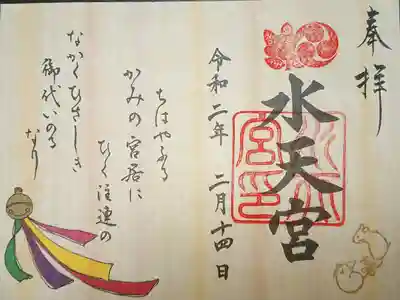 奉拝
水天宮
令和二年 二月十四日
ちはやふる
かみの宮居に
ひく注連の
ながくひさしき
御代いのる
なり